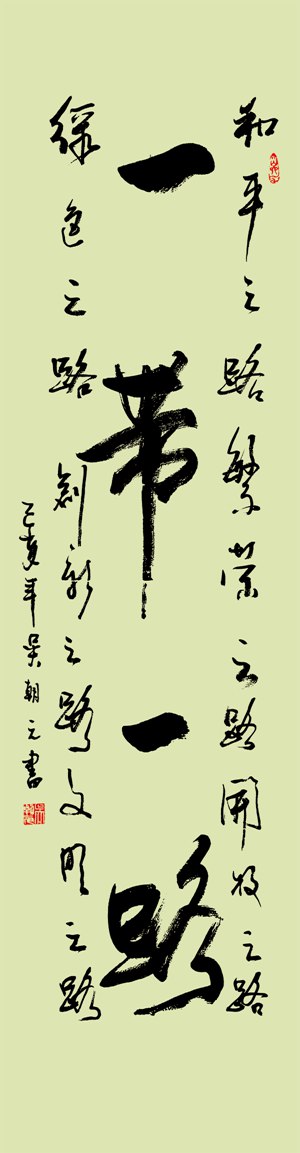 和平之路繁荣之路開放之路
一带一路
綠色之路創新之路文明之路
己亥年吴朝元書